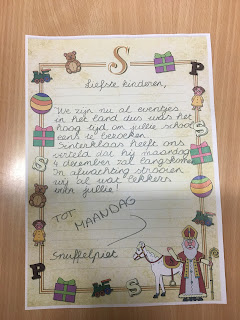 S
Liefste kinderen,
We zijn nu al eventjes
in het land dus was het
hoog tijd om jullie school
eens te bezoeken.
Sinterklaas heeft ons
verteld dat hij maandag
4 december zal langskomen.
In afwachting strooien
wij al wat lekkers
voor jullie!
TOT
MAANDAG
Snuffelpiet
P
S
S
P
S